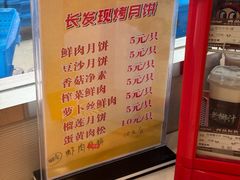 长发现烤月饼
鲜肉月饼 5元/只
豆沙月饼 5元/只
香菇净素 5元/只
榨菜鲜肉 5元/只
萝卜丝鲜肉 5元/只
榴莲月饼 10元/只
蛋黄肉松